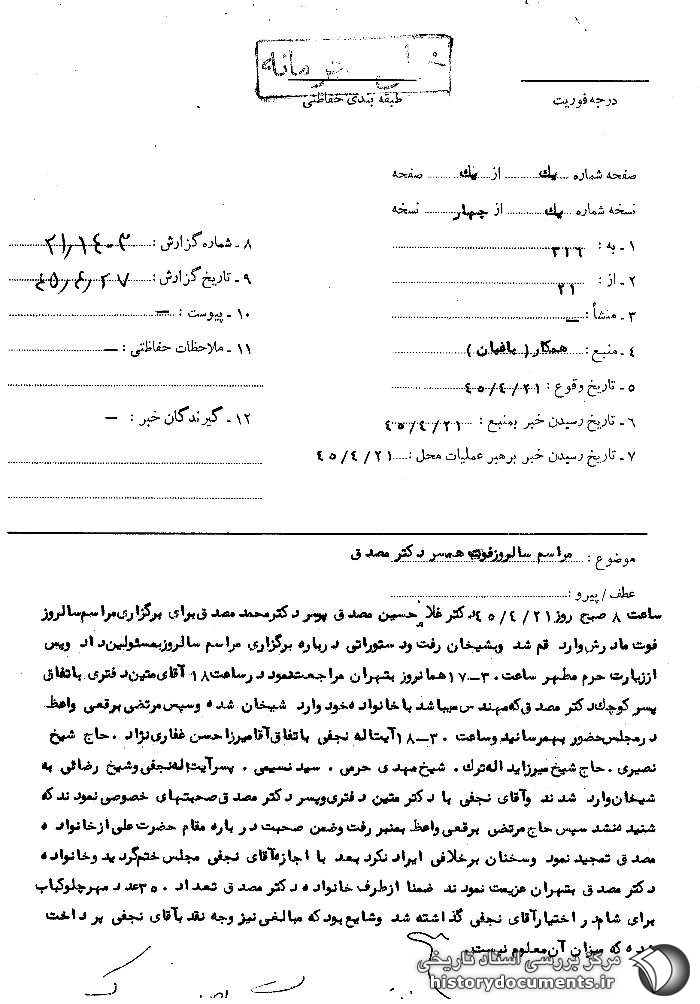 درجه فوریت
طبقه بندی حفاظتی
صفحه شماره یک از یک صفحه
نسخه شماره یک از چهار نسخه
۱ـ به : ۳۱۶
۲ـ از : ۲۱
۳ـ منشأ : —
۴ـ منبع : همکار ( بافیان )
۵ـ تاریخ وقوع : ۴۵/۴/۲۱
۶ـ تاریخ رسیدن خبر بمنبع : ۴۵/۴/۲۱
۷ـ تاریخ رسیدن خبر برهبر عملیات محل : ۴۵/۴/۲۱
۸ـ شماره گزارش :
۹ـ تاریخ گزارش : ۴۵/۴/۲۷
۱۰ـ پیوست : —
۱۱ـ ملاحظات حفاظتی : —
۱۲ـ گیرندگان خبر : —
موضوع : مراسم سالروز فوت همسر دکتر مصدق
عطف / پیرو :
ساعت ۸ صبح روز ۴۵/۴/۲۱ دکتر غلامحسین مصدق پسر دکتر محمد مصدق برای برگزاری مراسم سالروز
فوت مادرش وارد قم شد و بشیخان رفت ودستوراتی درباره برگزاری مراسم سالروز بمسئولین داد وپس
اززیارت حرم مطهر ساعت ۳۰ـ۱۷ همانروز بتهران مراجعت نمود در ساعت ۱۸ آقای متین دفتری باتفاق
پسر کوچک دکتر مصدق که مهندس میباشد با خانواده خود وارد شیخان شده وسپس مرتضی برقعی واعظ
در مجلس حضور بهمرسانید وساعت ۳۰ـ۱۸ آیت اله نجفی باتفاق آقا میرزا حسن غفاری نژاد . حاج شیخ
نصیری . حاج شیخ میرزا ید اله ترک . شیخ مهدی حرمی . سید نسیمی . پسر آیت اله نجفی وشیخ رضائی به
شیخان وارد شدند وآقای نجفی با دکتر متین دفتری وپسر دکتر مصدق صحبتهای خصوصی نمودند که
شنیده نشد سپس حاج مرتضی برقعی واعظ بمنبر رفت وضمن صحبت درباره مقام حضرت علی از خانواده
مصدق تمجید نمود وسخنان برخلافی ایراد نکرد بعد با اجازه آقای نجفی مجلس ختم گردید وخانواده
دکتر مصدق بتهران عزیمت نمودند ضمنا ازطرف خانواده دکتر مصدق تعداد ۳۵۰ عدد مهر چلوکباب
برای شام در اختیار آقای نجفی گذاشته شد وشایع بود که مبالغی نیز وجه نقد بآقای نجفی پرداخت
شده که میزان آن معلوم نیست.
مرکز بررسی اسناد تاریخی
historydocuments.ir